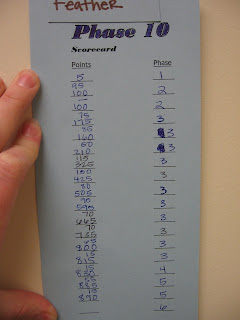 Feather
Phase 10
Scorecard
Points Phase
5 1
95
100 2
100 2
75
175 3
160 3
50
210 3
115
325 3
100
425 3
80
505 3
90
595 3
70
665 3
70
735 3
65
800 3
15
815 3
15
830 4
55
885 5
890 5
6